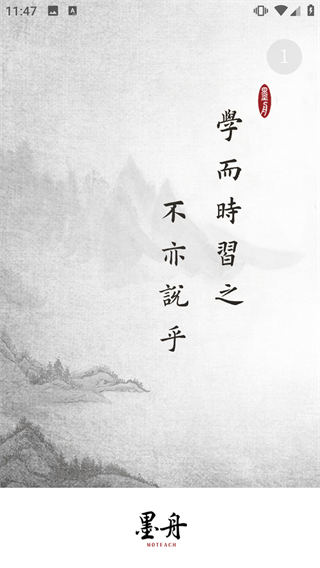 11:47
A
1
學而時習之
不亦說乎
墨舟
MOTEACH